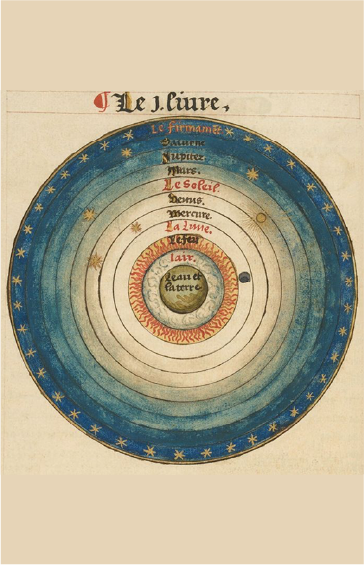 ¶ Le .j. livre.
Le firmament
Saturne
Jupiter
Mars.
Le Soleil.
Venus.
Mercure.
La Lune.
Le feu
lair.
Leau et
la terre